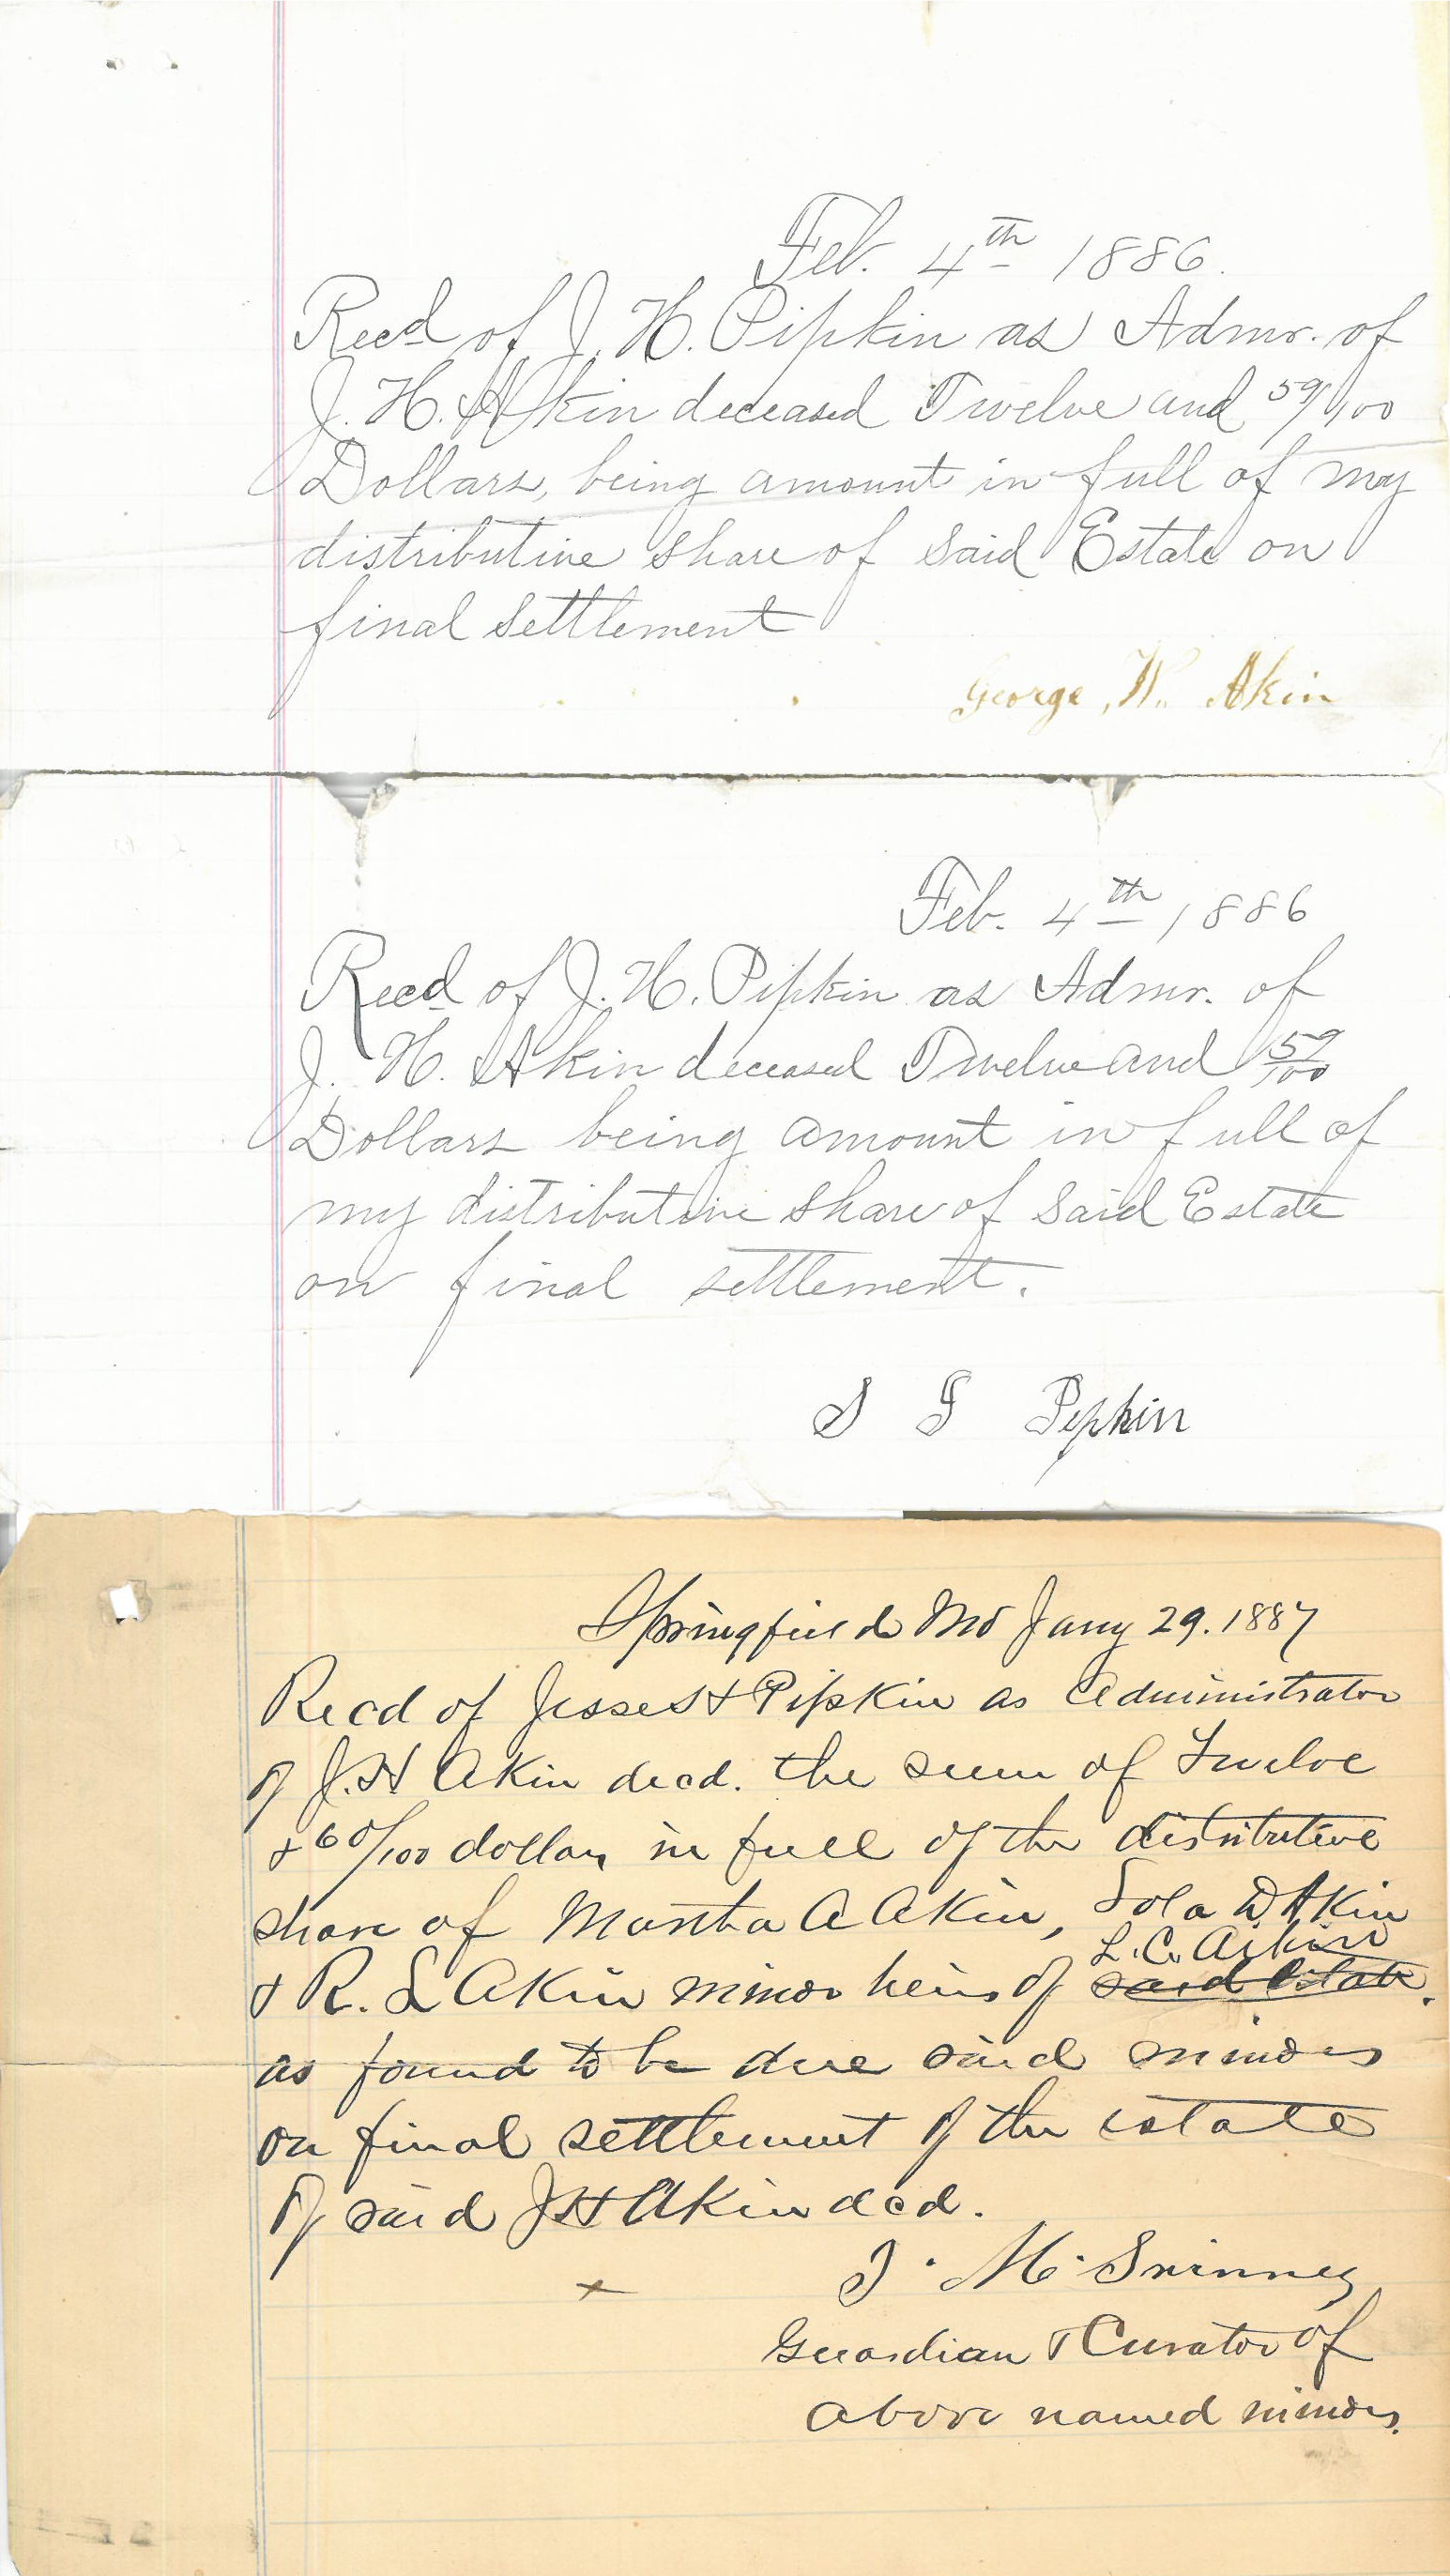 Feb. 4th 1886.
Recd of J. H. Pipkin as Admr. of
J. H. Akin deceased Twelve and 59/100
Dollars, being amount in full of my
distributive share of said Estate on
final settlement
George, W. Akin
Feb. 4th 1886
Recd of J. H. Pipkin as Admr. of
J. H. Akin deceased Twelve and 59/100
Dollars being amount in full of
my distributive share of said Estate
on final settlement.
S Pipkin
Springfield Mo Jany 29. 1887
Recd of Jesse H Pipkin as Administrator
of J. H Akin decd. the sum of Twelve
& 60/100 dollars in full of the distributive
share of Martha A Akin, Lola D Akin
L. C. Aikin
& R. L Akin minor heirs of said Estate.
as found to be due said minors
on final settlement of the estate
of said J H Akin dcd.
J. M.
Guardian & Curator of
above named minors.